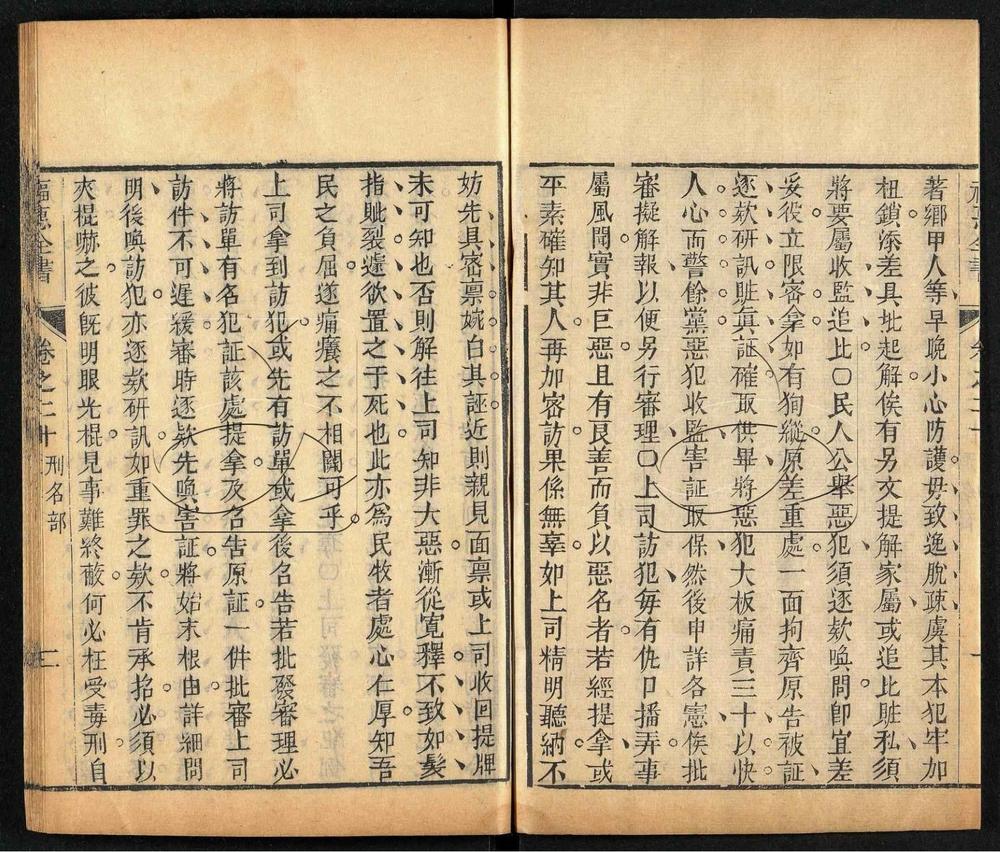 著鄉甲人等早晚小心防護毋致逸脫疎虞其本犯牢加
杻鎖添差具批起解俟有另文提解家屬或追比賍私須
將要屬收監追比〇民人公舉惡犯須逐欵喚問卽宜差
妥役立限密拿如有狥縱原差重處一面拘齊原告被証
逐欵研訊賍眞証確取供畢將惡犯大板痛責三十以快
人心而警餘黨惡犯收監害証取保然後申詳各憲俟批
審擬解報以便另行審理〇上司訪犯每有仇口播弄事
屬風聞實非巨惡且有良善而負以惡名者若經提拿或
平素確知其人再加密訪果係無辜如上司精明聽納不
妨先具密禀婉白其誣近則親見面禀或上司收回提牌
未可知也否則解往上司知非大惡漸從寬釋不致如髮
指眦裂遽欲置之于死也此亦爲民牧者處心仁厚知吾
民之負屈遂痛癢之不相關可乎
上司拿到訪犯或先有訪單或拿後召告若批發審理必
將訪單有名犯証該處提拿及召告原証一併批審上司
訪件不可遲緩審時逐欵先喚害証將始末根由詳細問
明後喚訪犯亦逐欵研訊如重罪之欵不肯承招必須以
夾棍嚇之彼旣明眼光棍見事難終蔽何必枉受毒刑自
福惠全書 卷之二十 刑名部 二